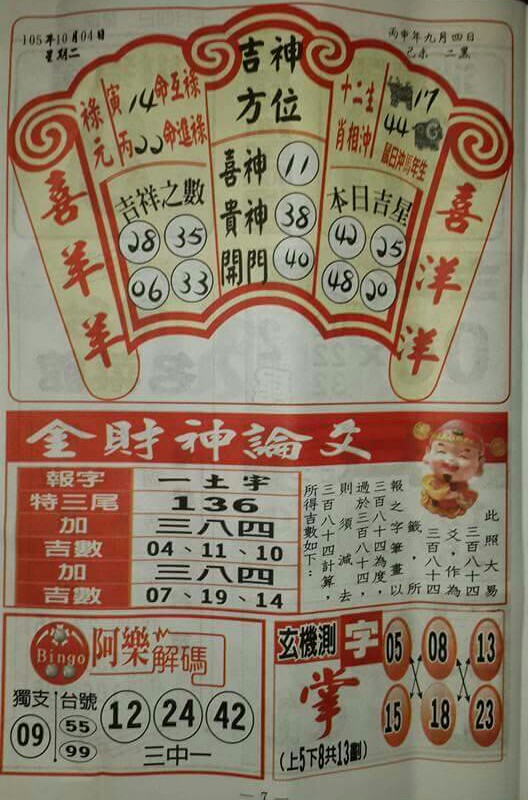 105年10月04日
星期二
丙申年九月四日
己未 二黑
吉神
方位
祿元
寅 14 命互祿
丙 22 命進祿
十二生
肖相沖
17
44
喜神 11
貴神 38
開門 40
吉祥之數
28 35
06 33
本日吉星
42 25
48 20
喜羊羊
喜洋洋
金財神論爻
報字 一土宇
特三尾 136
加 三八四
吉數 04、11、10
加 三八四
吉數 07、19、14
此照大易
三百八十四
爻,作為
三百八十四
籤,所
報之字筆畫以
三百八十四為度,
過於三百八十四,
則須減去
三百八十四計算,
所得吉數如下:
Bingo 阿樂解碼
獨支 09
台號 55 99
12 24 42
三中一
玄機測字
掌
(上5下8共13劃)
05 08 13
15 18 23
— 7 —